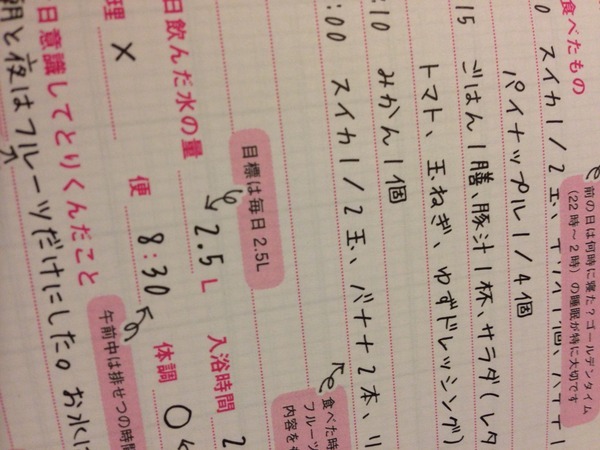 前の日は何時に寝た?ゴールデンタイム
(22時〜2時)の睡眠が特に大切です
食べたもの
0 スイカ1/2玉、
パイナップル1/4個
15 ごはん1膳、豚汁1杯、サラダ(レタ
トマト、玉ねぎ、ゆずドレッシング)
:10 みかん1個
:00 スイカ1/2玉、バナナ2本、リ
食べた時
フルーツ
内容を
目標は毎日2.5L
日飲んだ水の量 2.5L 入浴時間 2
理 × 便 8:30 体調 ○
午前中は排せつの時間
日意識してとりくんだこと
朝と夜はフルーツだけにした。お水は